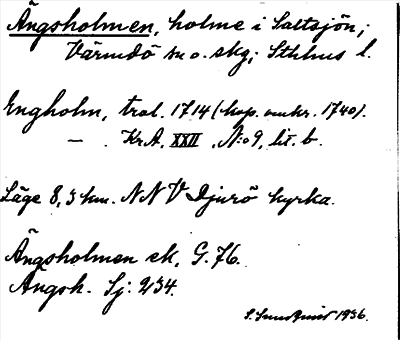 Ängsholmen, holme i Saltsjön;
Värmdö sn o. skg; Sthlms l.
Engholm, tral. 1714 (kop. omkr. 1740).
— . Kr.A. XXII, N:o 9, lit. b.
Läge 8,3 km. NNV Djurö kyrka.
Ängsholmen ek. G. 76.
Ängsh. Sj: 234.
S. Sundqvist 1936.